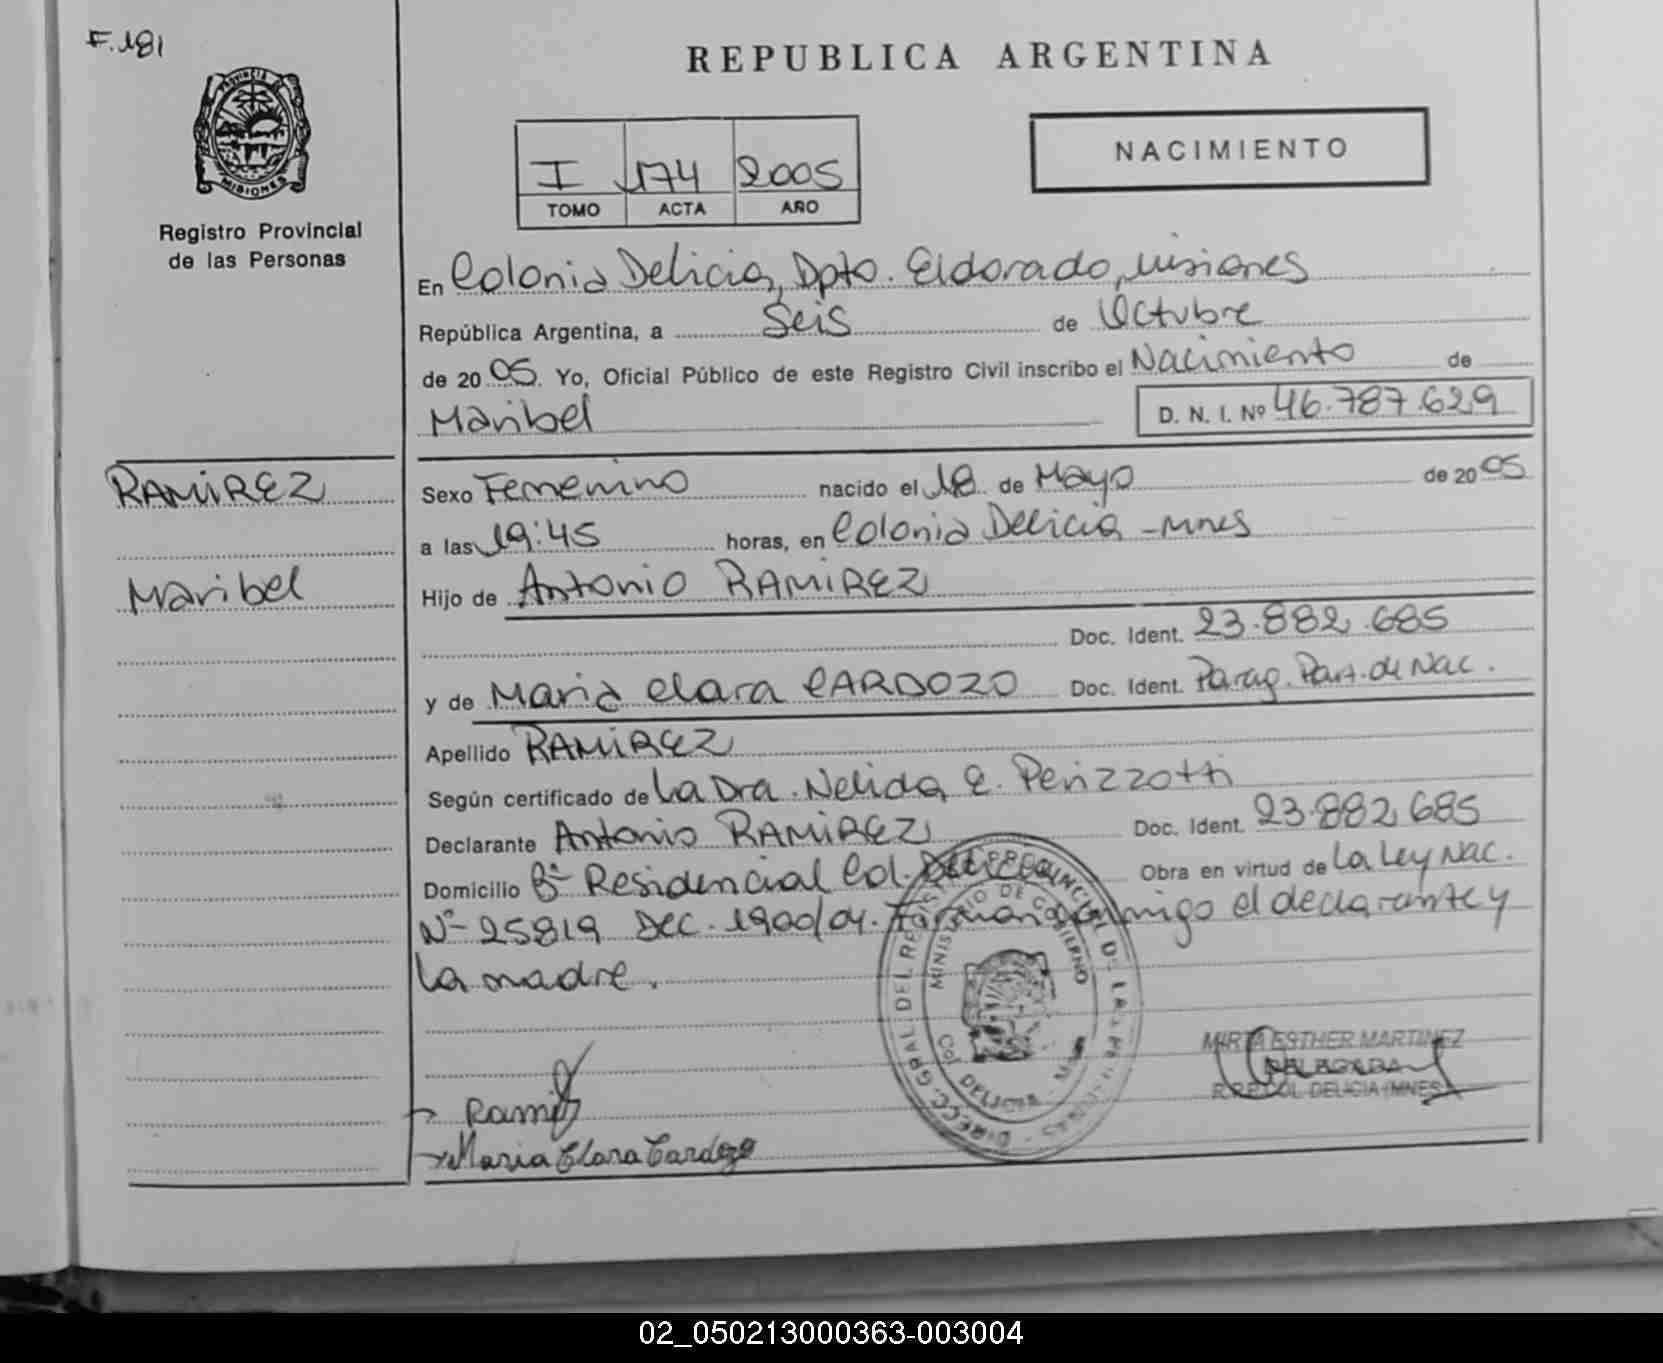 F. 181
PROVINCIA DE
MISIONES
Registro Provincial
de las Personas
REPUBLICA ARGENTINA
I 174 2005
TOMO ACTA AÑO
NACIMIENTO
En Colonia Delicia, Dpto. Eldorado, Misiones
República Argentina, a Seis de Octubre
de 20 05. Yo, Oficial Público de este Registro Civil inscribo el Nacimiento de
Maribel D. N. I. Nº 46.787.629
RAMIREZ
Maribel
Sexo Femenino nacido el 18 de Mayo de 20 05
a las 19:45 horas, en Colonia Delicia - Mnes
Hijo de Antonio RAMIREZ
Doc. Ident. 23.882.685
y de Maria Clara CARDOZO Doc. Ident. Parag. Part. de Nac.
Apellido RAMIREZ
Según certificado de La Dra. Nelida E. Perizzotti
Declarante Antonio RAMIREZ Doc. Ident. 23.882.685
Domicilio Bº Residencial Col. Delicia Obra en virtud de La Ley Nac.
Nº 25819 Dec. 1900/04. Firman conmigo el declarante y
la madre.
DIRECC. GRAL. DEL REGISTRO PROVINCIAL DE LAS PERSONAS
MINISTERIO DE GOBIERNO
COL. DELICIA - Mnes
MIRTA ESTHER MARTINEZ
DELEGADA
R.P.P. COL. DELICIA (MNES)
Ramirez
Maria Clara Cardozo
02_050213000363-003004